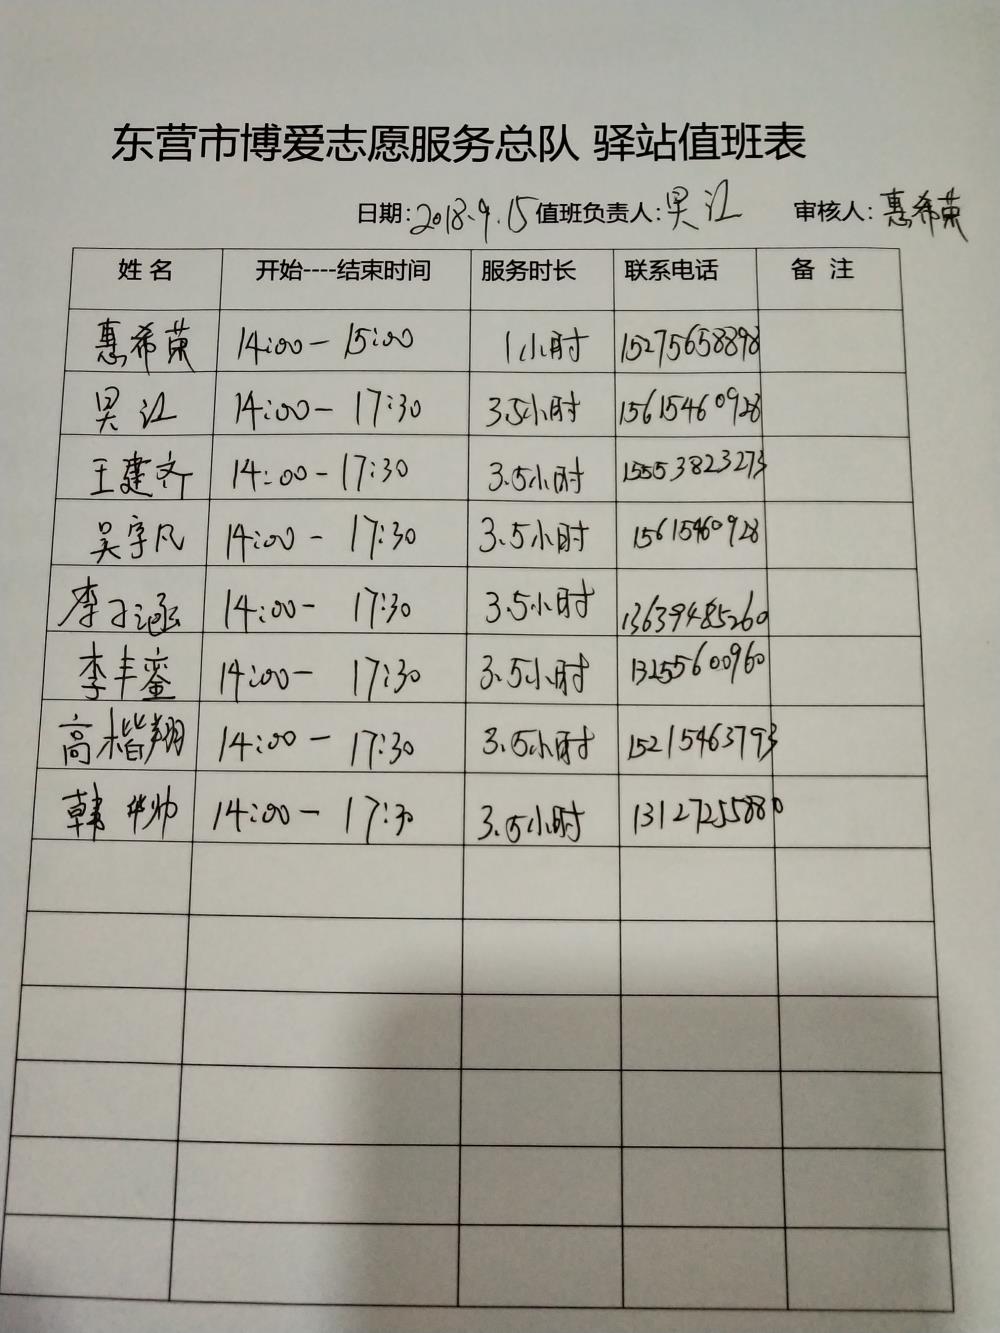 东营市博爱志愿服务总队 驿站值班表
日期:2018.9.15 值班负责人:吴江 审核人:惠希荣
姓名 开始----结束时间 服务时长 联系电话 备 注
惠希荣 14:00-15:00 1小时 15275658898
吴江 14:00-17:30 3.5小时 15615460928
王建齐 14:00-17:30 3.5小时 15553823273
吴宇凡 14:00-17:30 3.5小时 15615460928
李子涵 14:00-17:30 3.5小时 13639485260
李丰銮 14:00-17:30 3.5小时 13255600960
高楷翔 14:00-17:30 3.5小时 15215463793
韩华帅 14:00-17:30 3.5小时 13127255880